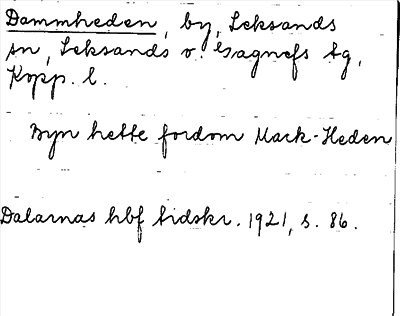 Dammheden, by, Leksands
sn, Leksands o. Gagnefs tg,
Kopp. l.
Byn hette fordom Mack-Heden
Dalarnas hbf tidskr. 1921, s. 86.